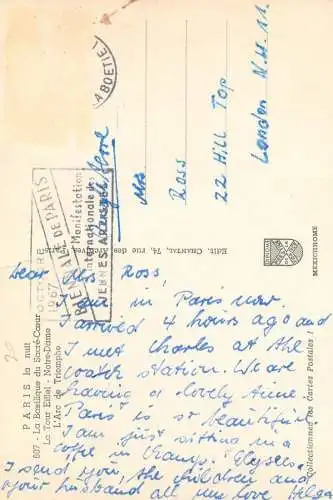 LA BOETIE
OCTOBRE
1967
BIENNALE DE PARIS
Manifestation
Internationale des
JEUNES ARTISTES
Mrs
Ross
22 Hill Top
London N.W. 11.
Edit. CHANTAL, 74, rue des
MEXICHROME
Dear Mrs. Ross,
I am in Paris now.
I arrived 4 hours ago and
I met Charles at the
coach station. We are
having a lovely time.
Paris is so beautiful
I am just sitting in a
cafe in Champ. Elysees.
I send you, the children and
your husband all my love Helen
PARIS la nuit
607 - La Basilique du Sacré-Cœur
La Tour Eiffel - Notre-Dame
L'Arc de Triomphe
"Collectionnez les Cartes Postales"
20